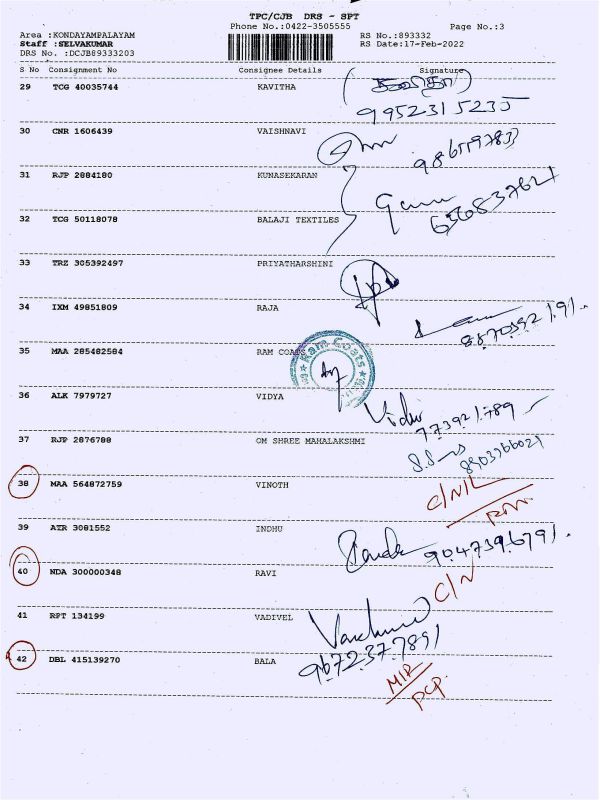 TPC/CJB DRS - SPT
Phone No.:0422-3505555
Page No.:3
Area :KONDAYAMPALAYAM
RS No.:893332
Staff :SELVAKUMAR
RS Date:17-Feb-2022
DRS No. :DCJB89333203
S No Consignment No Consignee Details Signature
29 TCG 40035744 KAVITHA
9952315235
30 CNR 1606439 VAISHNAVI
31 RJP 2884180 KUNASEKARAN
32 TCG 50118078 BALAJI TEXTILES
33 TRZ 305392497 PRIYATHARSHINI
34 IXM 49851809 RAJA
35 MAA 285482584 RAM COATS
Ram Coats
36 ALK 7979727 VIDYA
Vidu
773921789
37 RJP 2876788 OM SHREE MAHALAKSHMI
8903766021
38 MAA 564872759 VINOTH
39 ATR 3081552 INDHU
9047396791.
40 NDA 300000348 RAVI
C/N
41 RPT 134199 VADIVEL
9672377891
42 DBL 415139270 BALA
MIR
PCP.